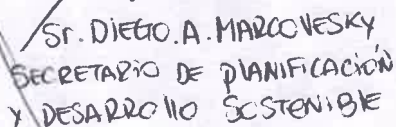 Sr. DIEGO.A. MARCOVESKY
SECRETARIO DE PLANIFICACIÓN
Y DESARROLLO SOSTENIBLE